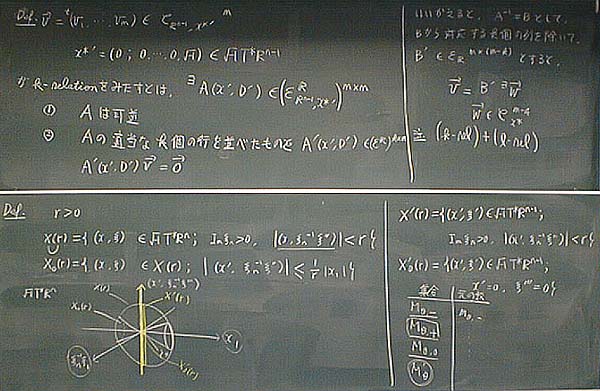 Def. v⃗ = ᵗ(v₁, ⋯, vₘ) ∈ 𝒞_{ℝⁿ⁻¹, x*'}^m
x*' = (0; 0, ⋯, 0, √-1) ∈ √-1 T*ℝⁿ⁻¹
が k-relationをみたすとは, ∃A(x', D') ∈ (ℰ^ℝ_{ℝⁿ⁻¹, x*'})^{m×m}
① Aは可逆
② Aの適当なk個の行を並べたものを A'(x', D') ∈ (ℰ^ℝ)^{k×m}
A'(x', D') v⃗ = 0⃗
いいかえると, A⁻¹ = B として,
Bから対応するk個の列を除いて,
B' ∈ ℰ_ℝ^{m×(m-k)} とすると,
v⃗ = B' ∃w⃗
w⃗ ∈ 𝒞_{x*}^{m-k}
(k-rel) + (l-rel)
Def. r > 0
X(r) = { (x, ξ) ∈ √-1 T*ℝⁿ; Im ξₙ > 0, |(x, ξₙ⁻¹ξ'')| < r }
∪
X₀(r) = { (x, ξ) ∈ X(r); |(x', ξₙ⁻¹ξ'')| ≤ 1/r |x₁| }
√-1 T*ℝⁿ
X(r)
X₀(r)
(x', ξₙ⁻¹ξ'')
X'(r)
x₁
ξₙ⁻¹ξ₁
X₀'(r)
X'(r) = { (x', ξ') ∈ √-1 T*ℝⁿ⁻¹;
Im ξₙ > 0, |(x', ξₙ⁻¹ξ'')| < r }
X₀'(r) = { (x', ξ') ∈ √-1 T*ℝⁿ⁻¹;
x' = 0, ξ'' = 0 }
集合 元の数
M_{θ,-} m_{θ,-}
M_{θ,+}
M_{θ,0}
M'_θ